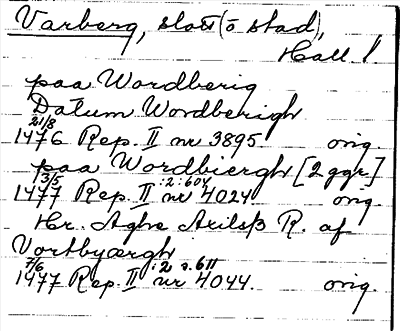 Varberg, slott (o stad),
Hall l
paa Wordberig
Datum Wordberigh
21/8
1476 Rep. II nr 3895 orig.
paa Wordbiergh [2 ggr]
3/5 :2:604
1477 Rep. II nr 4024 orig.
Hr. Aghe Arilsß R. af
Vortbyærgh
7/6 :2 s. 611
1477 Rep. II nr 4044. orig.